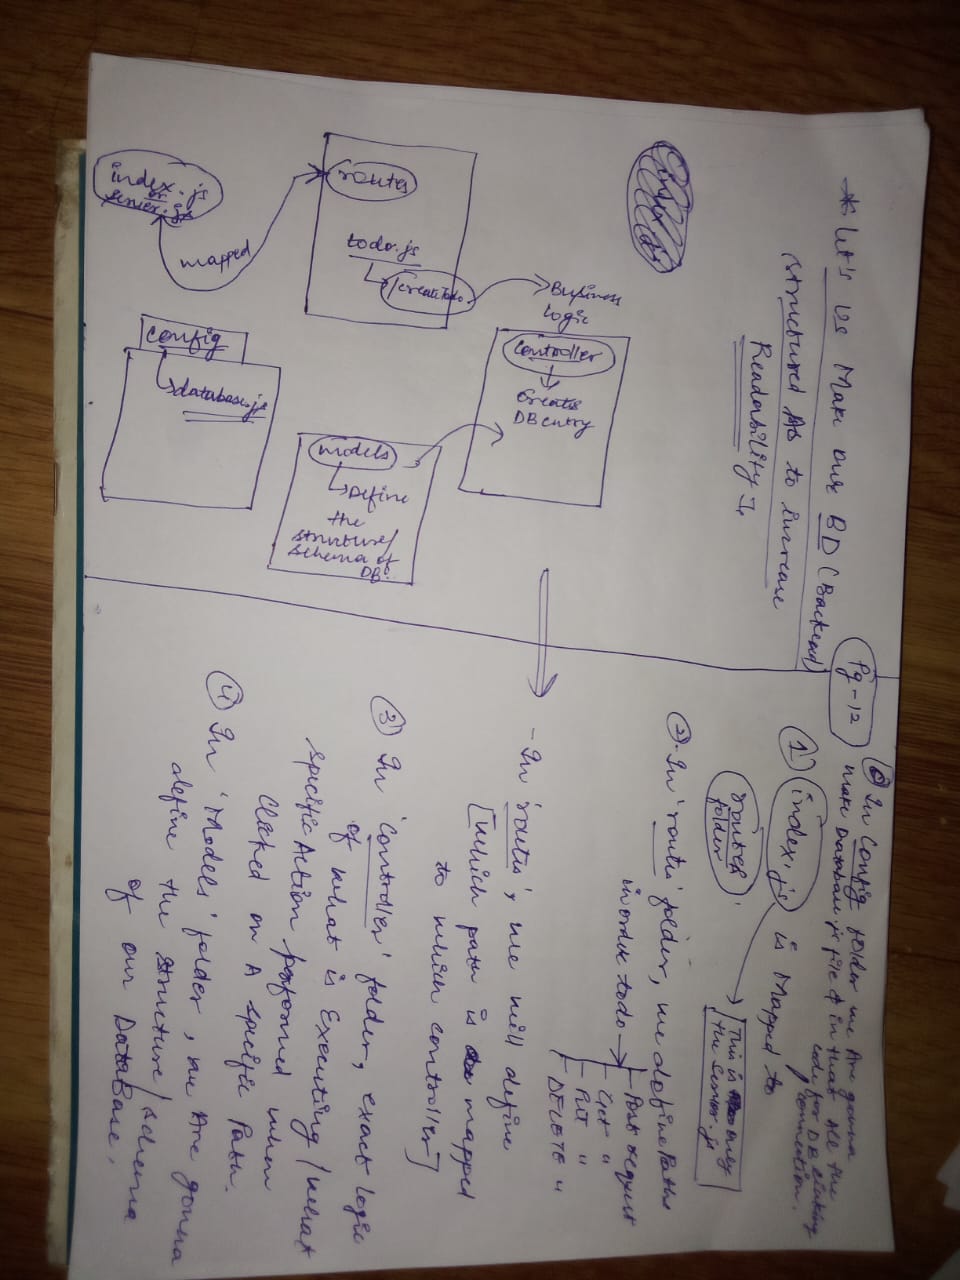 * Let's us Make our BD (Backend)
structured As to increase
Readability :-
index.js
Business
Logic
Controller
Creates
DB entry
routes
todo.js
/createtodo.
models
Define
the
structure/
schema of
DB.
index.js
or
server.js
mapped
Config
database.js
Pg-12
⓪ In Config folder we Are gonna
make Database.js file & in that All the
code for DB linking
/ connection.
① index.js is Mapped to
routes
folder
This is only
the server.js
② - In 'routes' folder, we define Paths
in order to do → Post request
Get "
PUT "
DELETE "
- In 'routes', we will define
[which path is mapped
to which controller]
③ In 'Controller' folder, exact logic
of what is Executing / what
specific Action performed when
clicked on A specific Path.
④ In 'Models' folder, we Are gonna
define the structure / schema
of our DataBase.